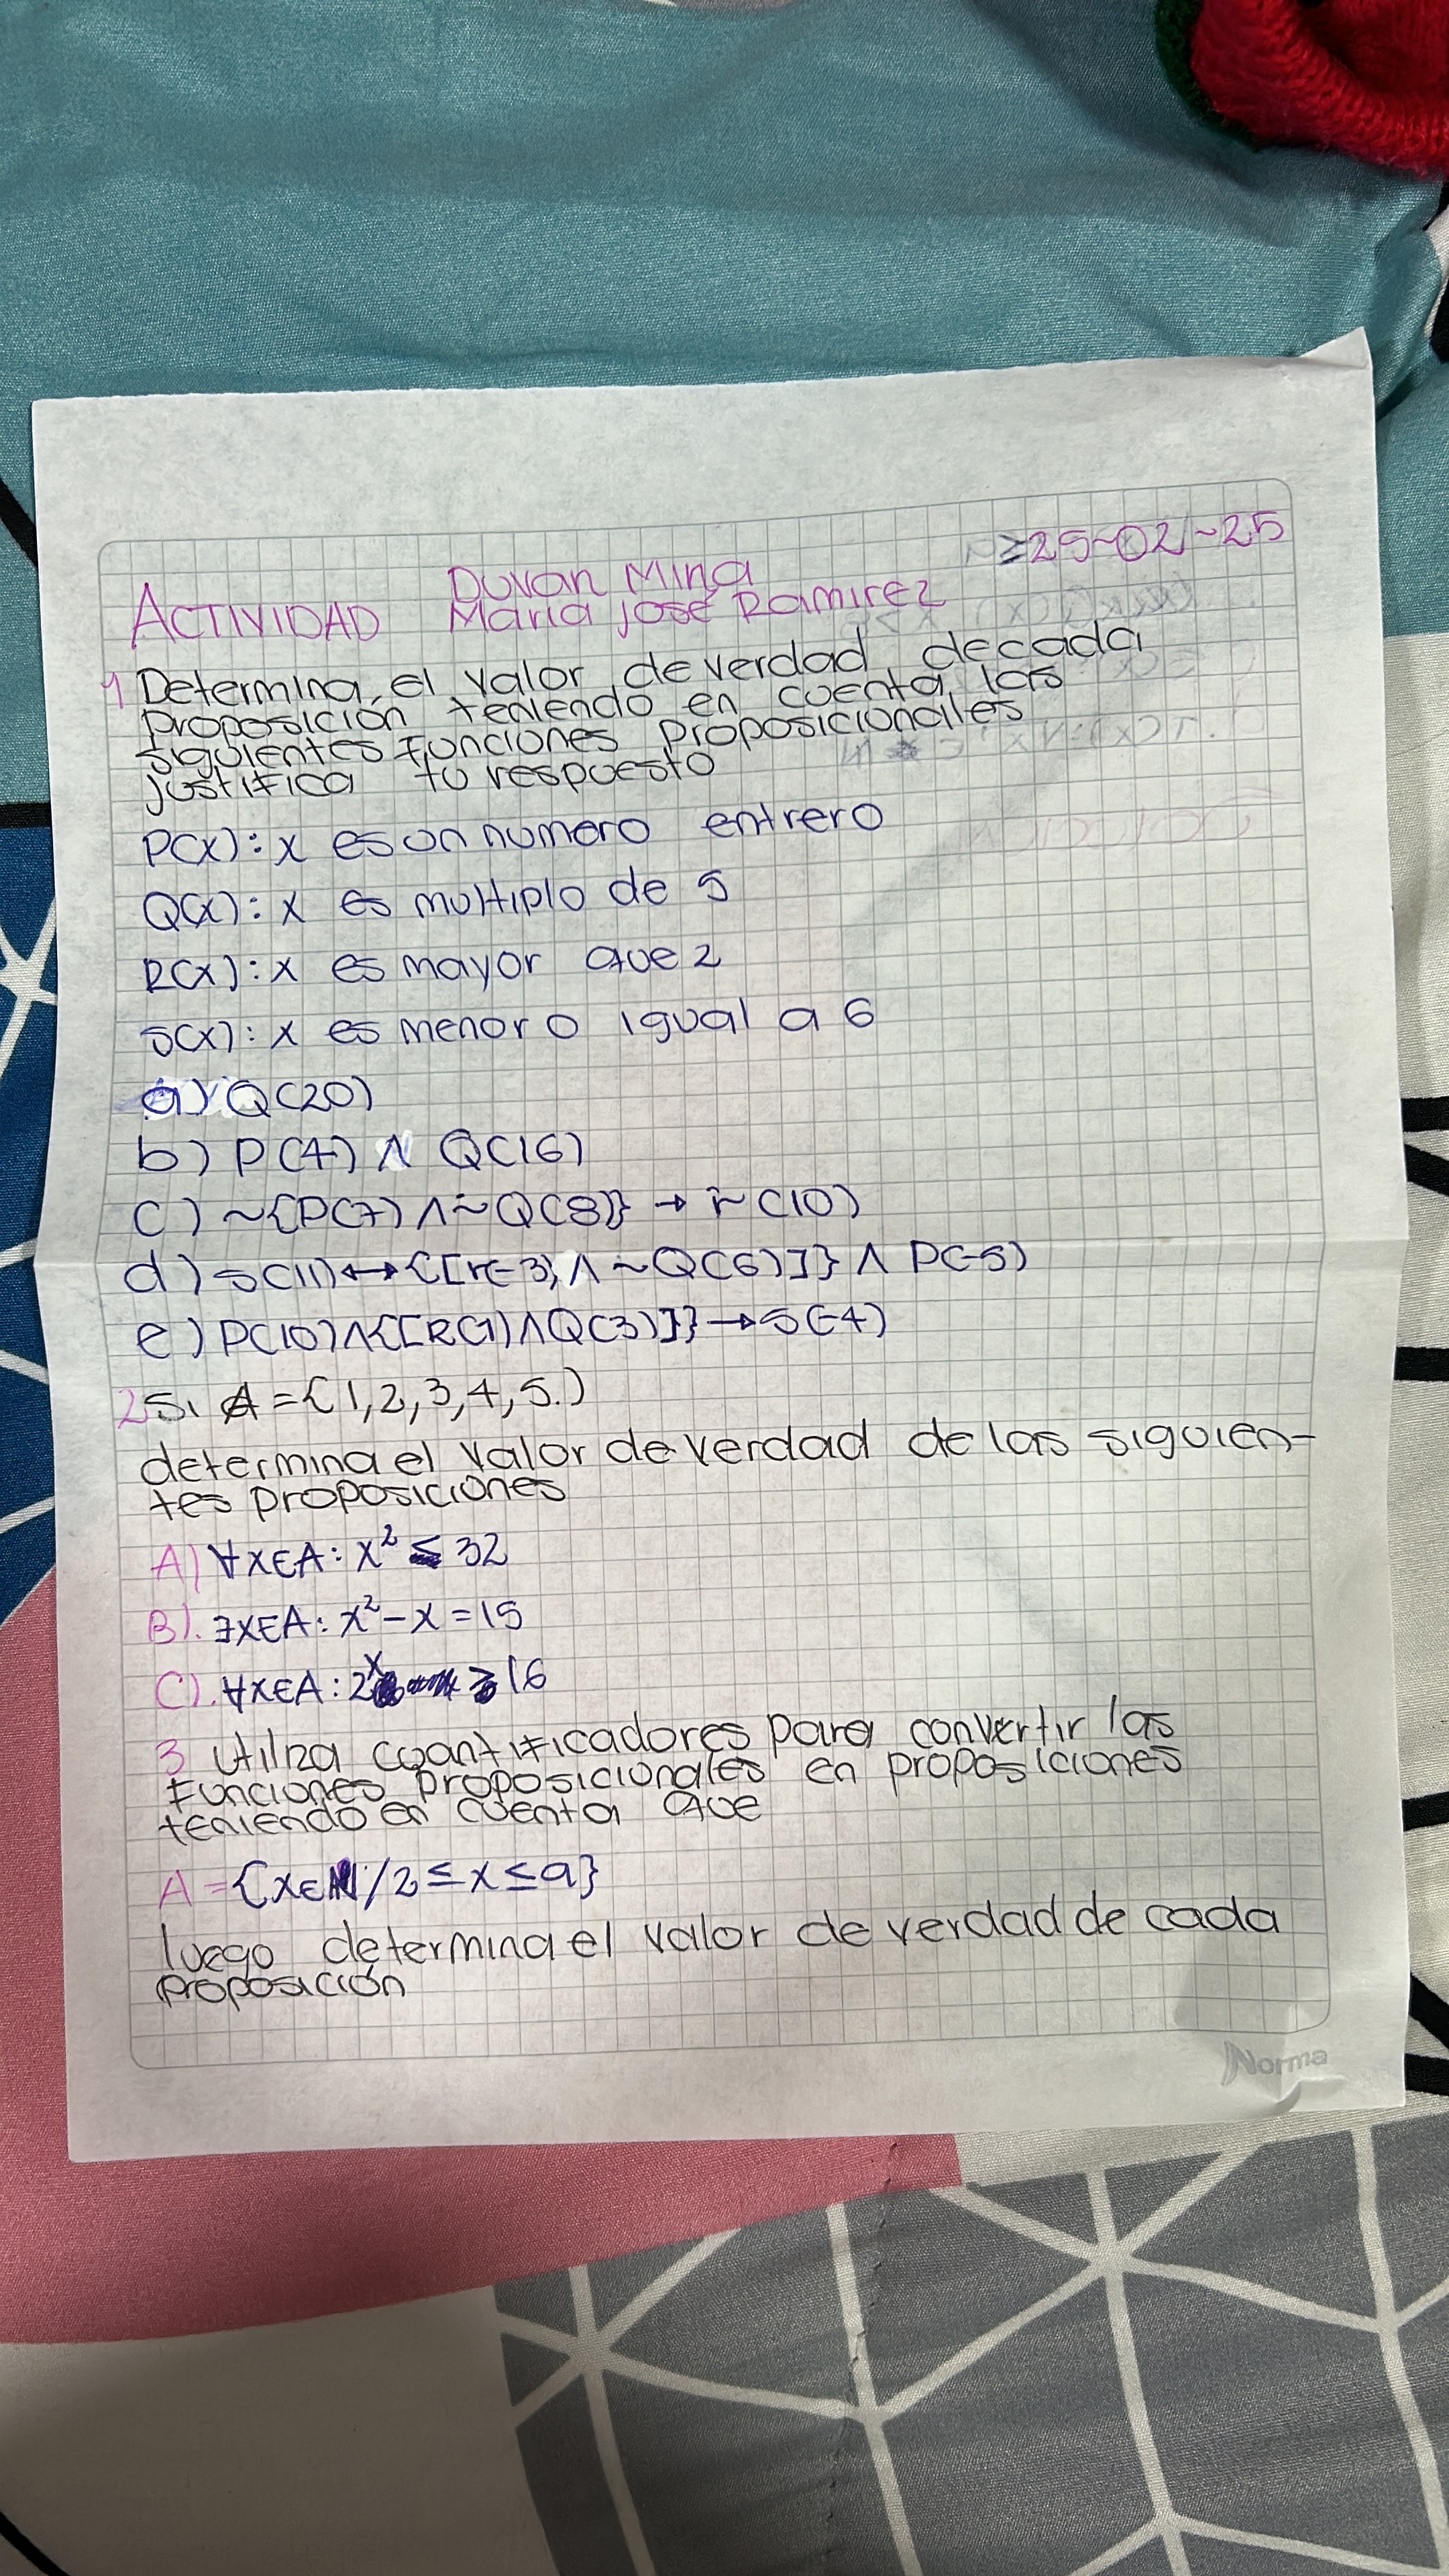 ≥25~02~25
Duvan Mina
ACTIVIDAD Maria José Ramirez
1 Determina el valor de verdad decada
proposición teniendo en cuenta las
siguientes funciones proposicionales
justifica tu respuesto
P(x): x es un numero entrero
Q(x): x es multiplo de 5
R(x): x es mayor que 2
S(x): x es menor o igual a 6
a) Q(20)
b) P(4) ∧ Q(16)
c) ~{P(7) ∧ ~Q(8)} → r~(10)
d) S(11) ↔ {[r(-3) ∧ ~Q(6)]} ∧ P(-5)
e) P(10) ∧ {[R(1) ∧ Q(3)]} → S(-4)
2 Si A = {1,2,3,4,5.)
determina el valor de verdad de las siguien-
tes proposiciones
A) ∀x∈A: x² ≤ 32
B). ∃x∈A: x² - x = 15
C). ∀x∈A: 2ˣ ≥ 16
3 Utiliza cuantificadores para convertir las
funciones proposicionales en proposiciones
teniendo en cuenta que
A = {x∈N / 2 ≤ x ≤ 9}
luego determina el valor de verdad de cada
proposición
Norma